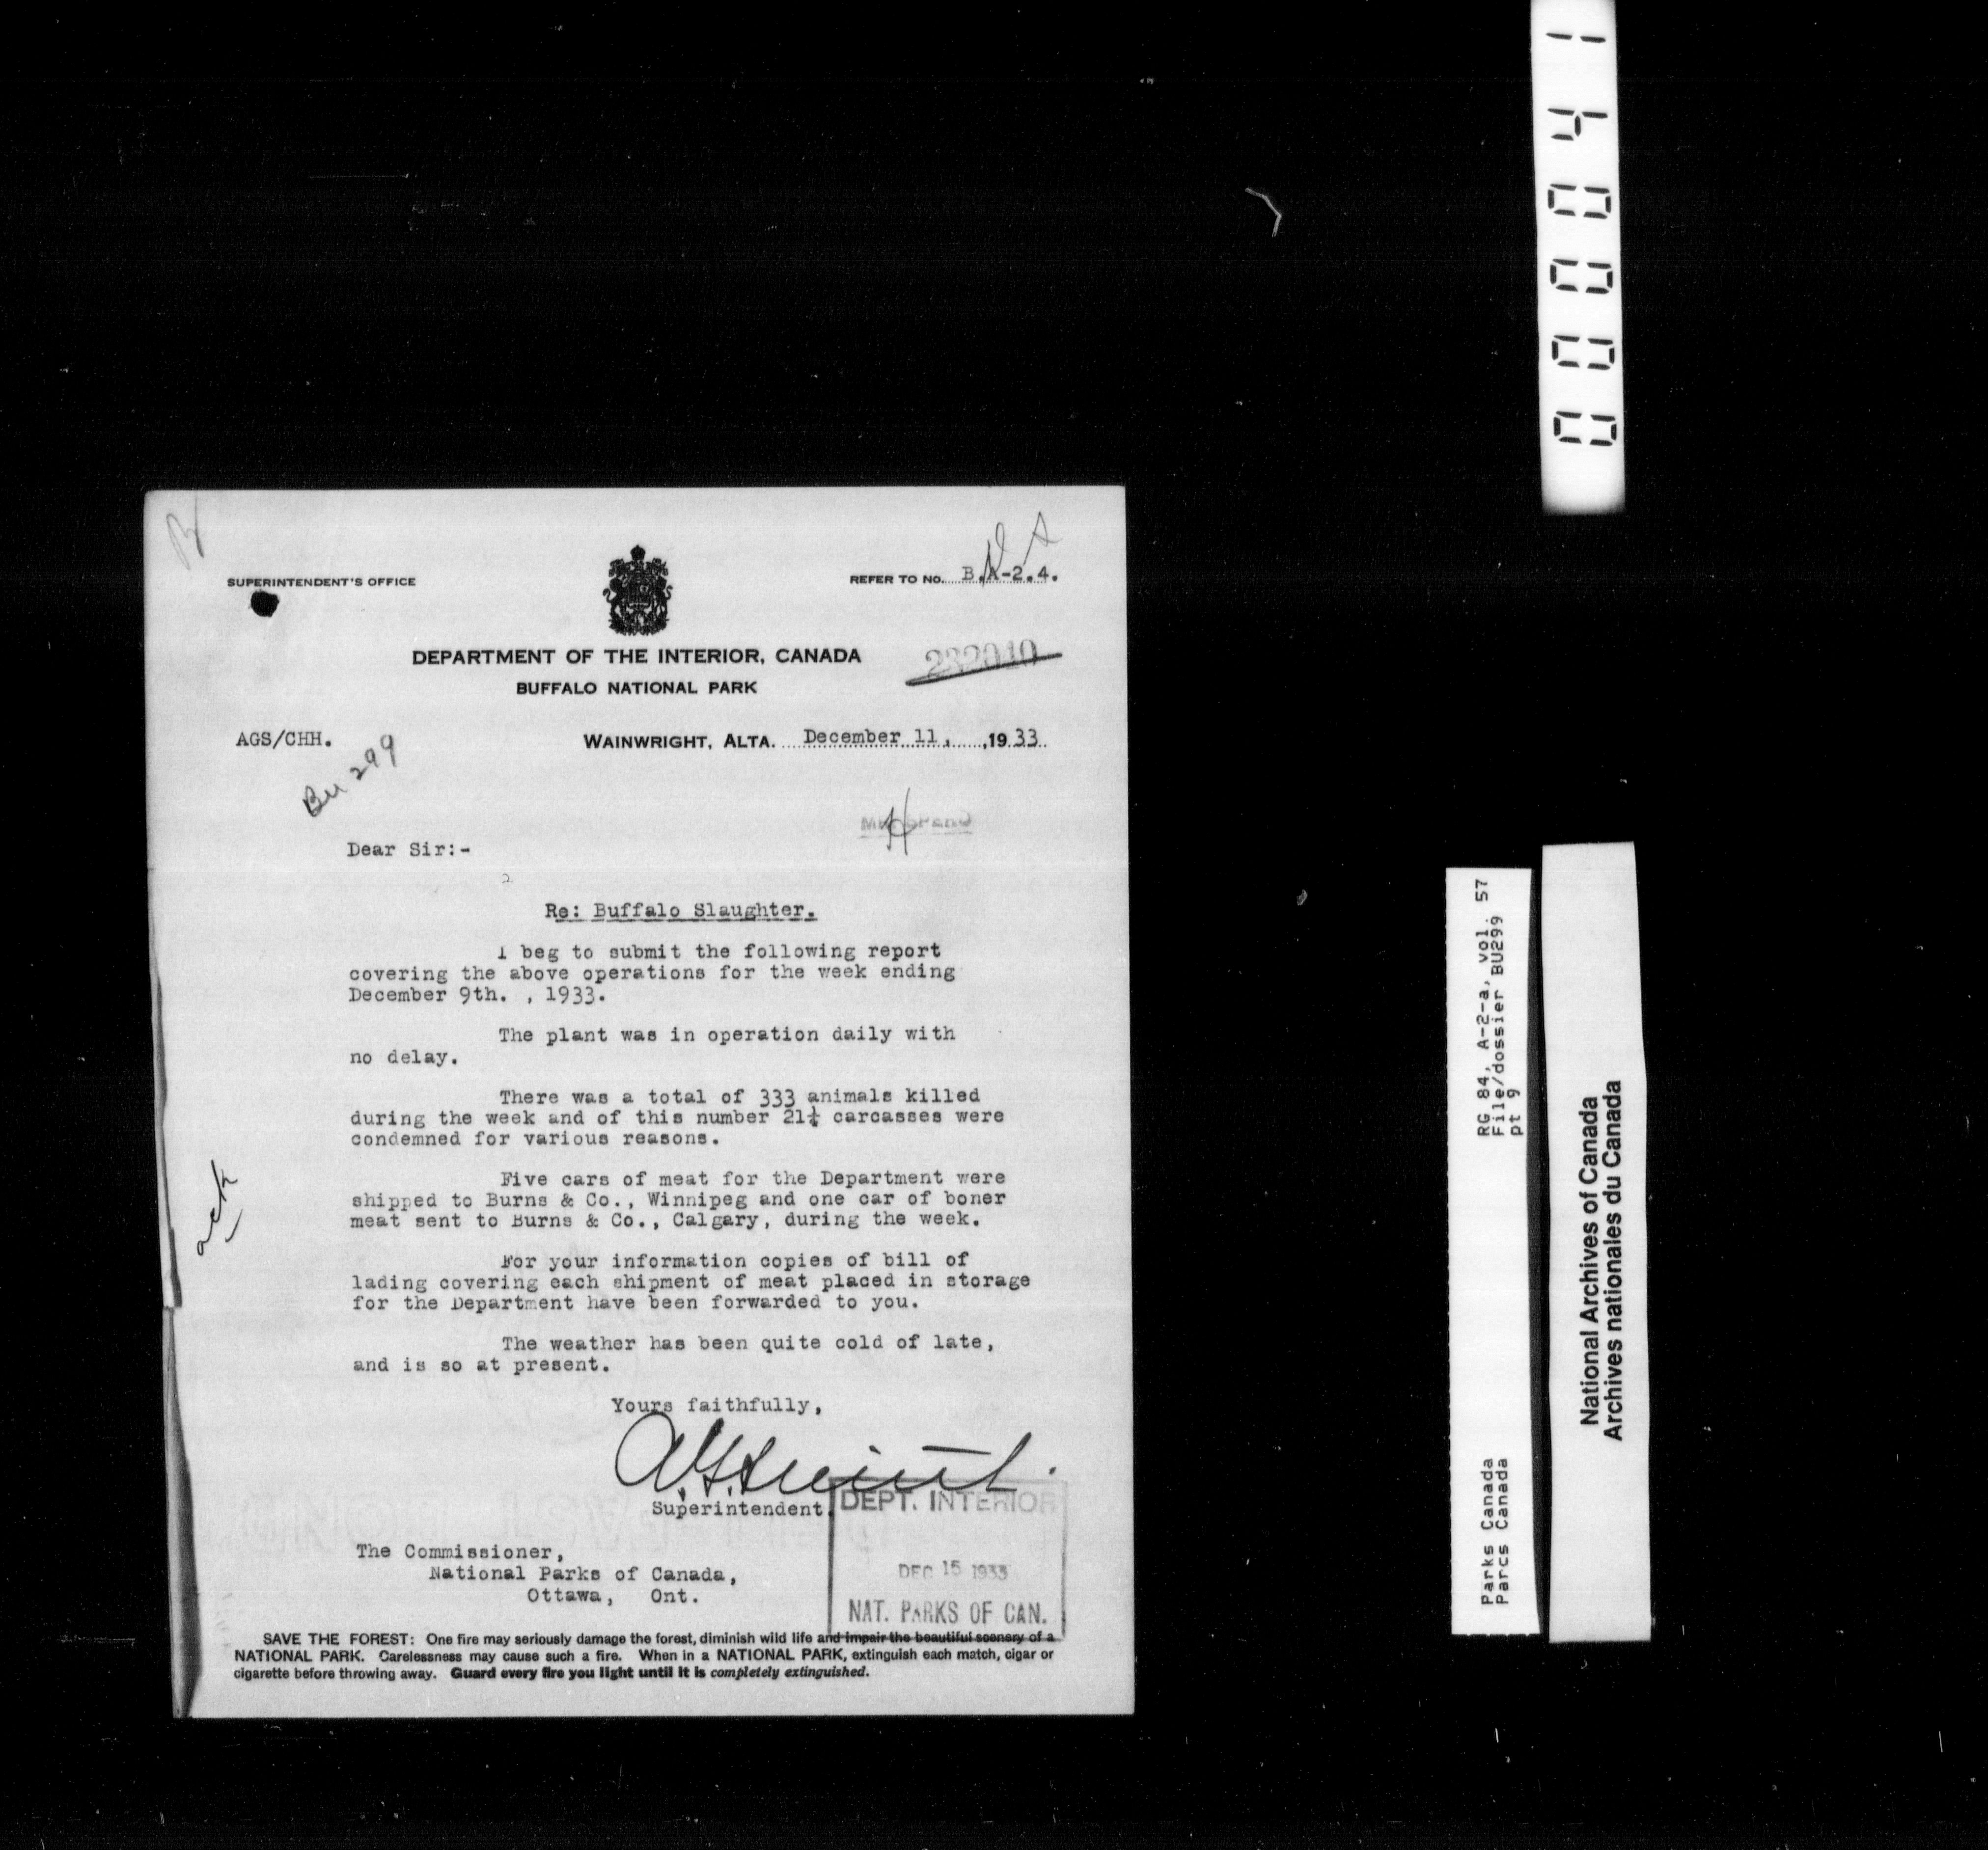 000041
SUPERINTENDENT'S OFFICE
REFER TO NO. B.A-2.4.
DEPARTMENT OF THE INTERIOR, CANADA
232040
BUFFALO NATIONAL PARK
AGS/CHH.
WAINWRIGHT, ALTA. December 11, ,1933.
Bu 299
Dear Sir:-
Re: Buffalo Slaughter.
I beg to submit the following report
covering the above operations for the week ending
December 9th. , 1933.
The plant was in operation daily with
no delay.
There was a total of 333 animals killed
during the week and of this number 21¼ carcasses were
condemned for various reasons.
Five cars of meat for the Department were
shipped to Burns & Co., Winnipeg and one car of boner
meat sent to Burns & Co., Calgary, during the week.
For your information copies of bill of
lading covering each shipment of meat placed in storage
for the Department have been forwarded to you.
The weather has been quite cold of late,
and is so at present.
Yours faithfully,
Superintendent.
DEPT. INTERIOR
DEC 15 1933
NAT. PARKS OF CAN.
The Commissioner,
National Parks of Canada,
Ottawa, Ont.
SAVE THE FOREST: One fire may seriously damage the forest, diminish wild life and impair the beautiful scenery of a
NATIONAL PARK. Carelessness may cause such a fire. When in a NATIONAL PARK, extinguish each match, cigar or
cigarette before throwing away. Guard every fire you light until it is completely extinguished.
RG 84, A-2-a, vol. 57
File/dossier BU299
pt 9
Parks Canada
Parcs Canada
National Archives of Canada
Archives nationales du Canada